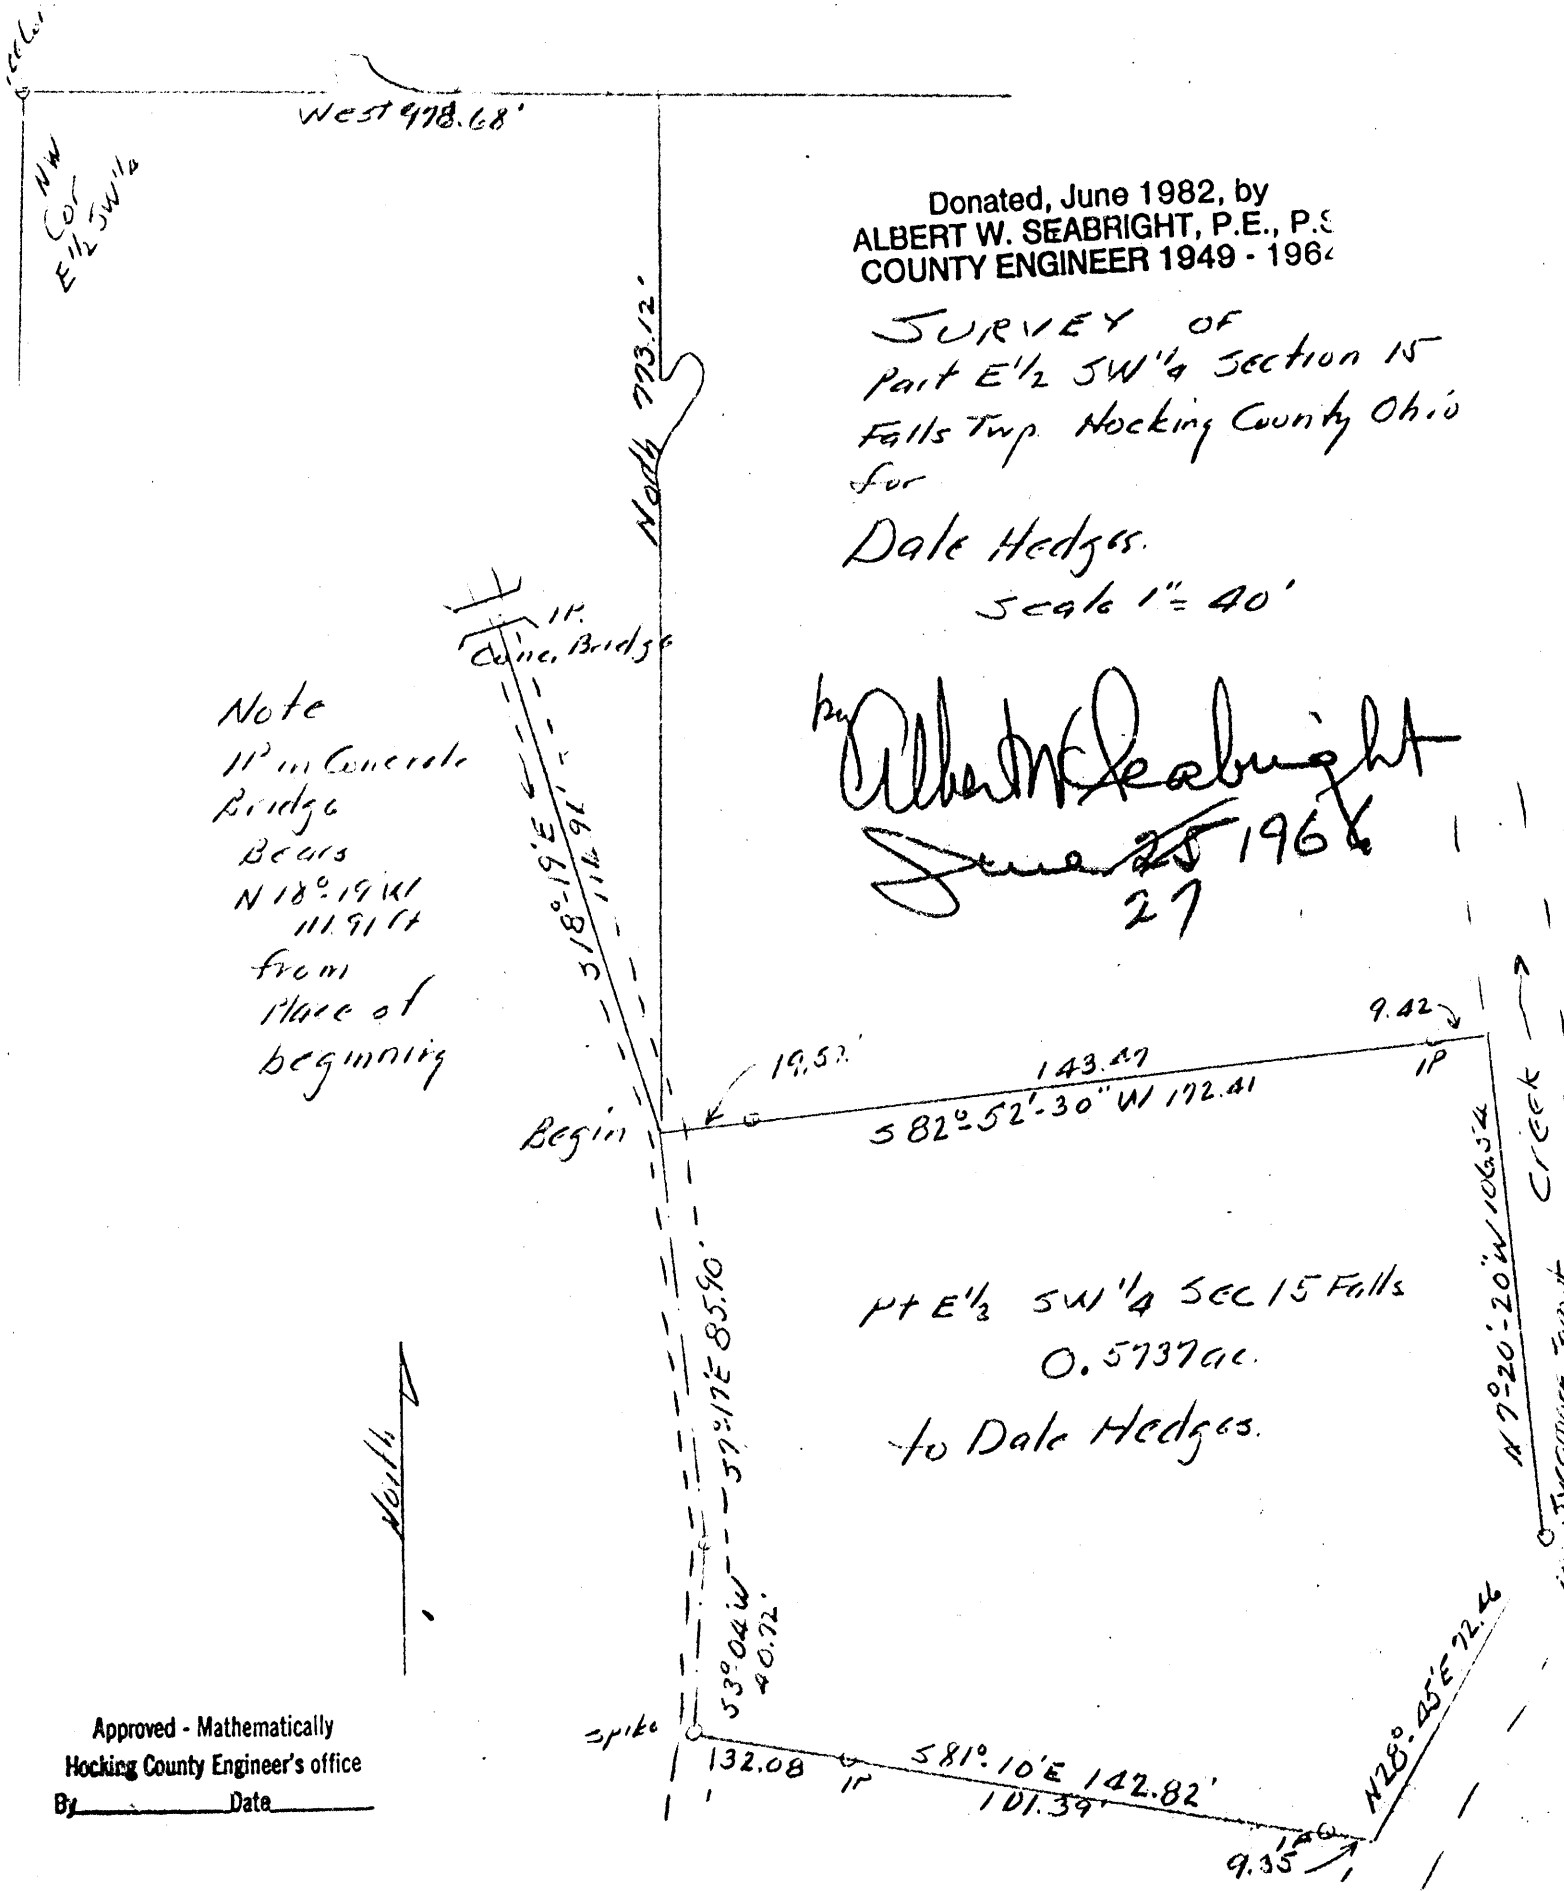 West 978.68'
NW
Cor
E 1/2 SW 1/4
Donated, June 1982, by
ALBERT W. SEABRIGHT, P.E., P.S
COUNTY ENGINEER 1949 - 196
SURVEY OF
Part E 1/2 SW 1/4 Section 15
Falls Twp. Hocking County Ohio
for
Dale Hedges.
Scale 1" = 40'
by Albert W Seabright
June 25 1966
27
North 773.12'
I.P.
Conc. Bridge
Note
IP in Concrete
Bridge
Bears
N 18°-19' W
111.91 ft
from
Place of
beginning
S 18°-19' E
Begin
19.52'
143.47
S 82°-52'-30" W 172.41
9.42
IP
N 7°-20'-20" W 106.54
Creek
S 7°-17' E 85.90'
Pt E 1/2 SW 1/4 Sec 15 Falls
0.5737 ac.
to Dale Hedges.
North
S 3°-04' W
40.72'
Spike
132.08
IP
S 81°-10' E 142.82'
101.39'
IP
9.35
N 28°-45' E 72.46
Approved - Mathematically
Hocking County Engineer's office
By Date